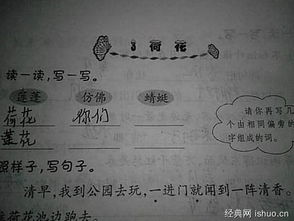 3 荷花
读一读,写一写。
莲蓬 仿佛 蜻蜓
荷花 你们
莲花
请你再写几
个由相同偏旁的
字组成的词。
照样子,写句子。
清早,我到公园去玩,一进门就闻到一阵清香。
荷花池边跑去。
经典网 ishuo.cn